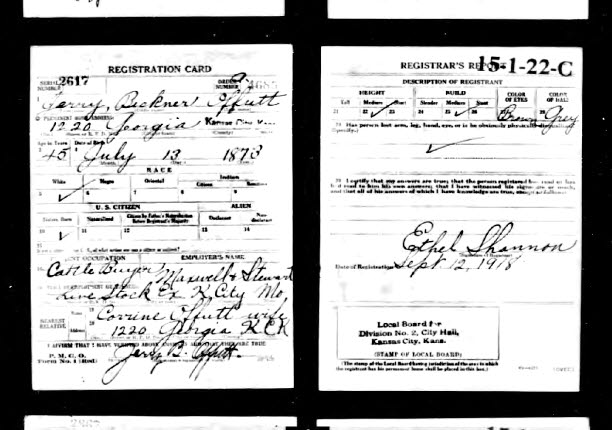 REGISTRATION CARD
SERIAL NUMBER 2617 ORDER NUMBER
Jerry Bickner Offutt
PERMANENT HOME ADDRESS:
1220 Georgia Kansas City
Age in Years Date of Birth
45 July 13 1873
RACE
White Negro Oriental Indian
Citizen
5 ✓ 6 7 8 9
U. S. CITIZEN ALIEN
Native Born Naturalized Citizen by Father's Naturalization Before Registrant's Majority Declarant Non-declarant
10 ✓ 11 12 13 14
PRESENT OCCUPATION EMPLOYER'S NAME
Cattle Buyer Maxwell & Stewart
Live Stock Ex K. City Mo.
NEAREST RELATIVE Name Corrine Offutt wife
1220 Georgia K C K
I AFFIRM THAT I HAVE VERIFIED ABOVE ANSWERS AND THAT THEY ARE TRUE
P. M. G. O.
Form No. 1 (Red)
Jerry B. Offutt
REGISTRAR'S REPORT
15-1-22-C
DESCRIPTION OF REGISTRANT
HEIGHT BUILD COLOR OF EYES COLOR OF HAIR
Tall Medium Short Slender Medium Stout
21 22 ✓ 23 24 25 ✓ 26 27 Brown 28 Grey
29 Has person lost arm, leg, hand, eye, or is he obviously physically disqualified?
(Specify.)
✓
30 I certify that my answers are true; that the person registered has read or has
had read to him his own answers; that I have witnessed his signature or mark,
and that all of his answers of which I have knowledge are true, except as follows:
Ethel Shannon
Date of Registration Sept 12, 1918
Local Board for
Division No. 2, City Hall,
Kansas City, Kans.
(STAMP OF LOCAL BOARD)
(The stamp of the Local Board having jurisdiction of the area in which
the registrant has his permanent home shall be placed in this box.)